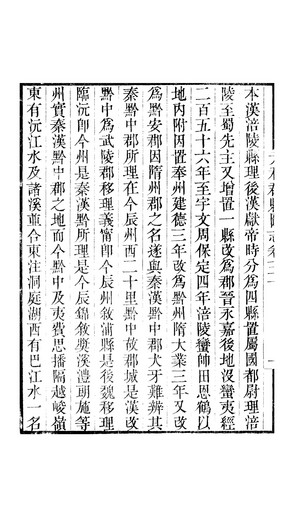 本漢涪陵縣理後漢獻帝時分為四縣置屬國都尉理涪
陵至蜀先主又增置一縣改為郡晉永嘉後地沒蠻夷經
二百五十六年至宇文周保定四年涪陵蠻帥田恩鶴以
地內附因置奉州建德三年改為黔州隋大業三年又改
為黔安郡因隋州郡之名遂與秦漢黔中郡犬牙難辨其
秦黔中郡所理在今辰州西二十里黔中故郡城是漢改
黔中為武陵郡移理義甯即今辰州敘浦縣是後魏移理
臨沅即今州是秦漢黔所理是今辰錦敘奬溪澧朗施等
州實秦漢黔中郡之地而今黔中及夷費思播隔越峻嶺
東有沅江水及諸溪並合東注洞庭湖西有巴江水一名